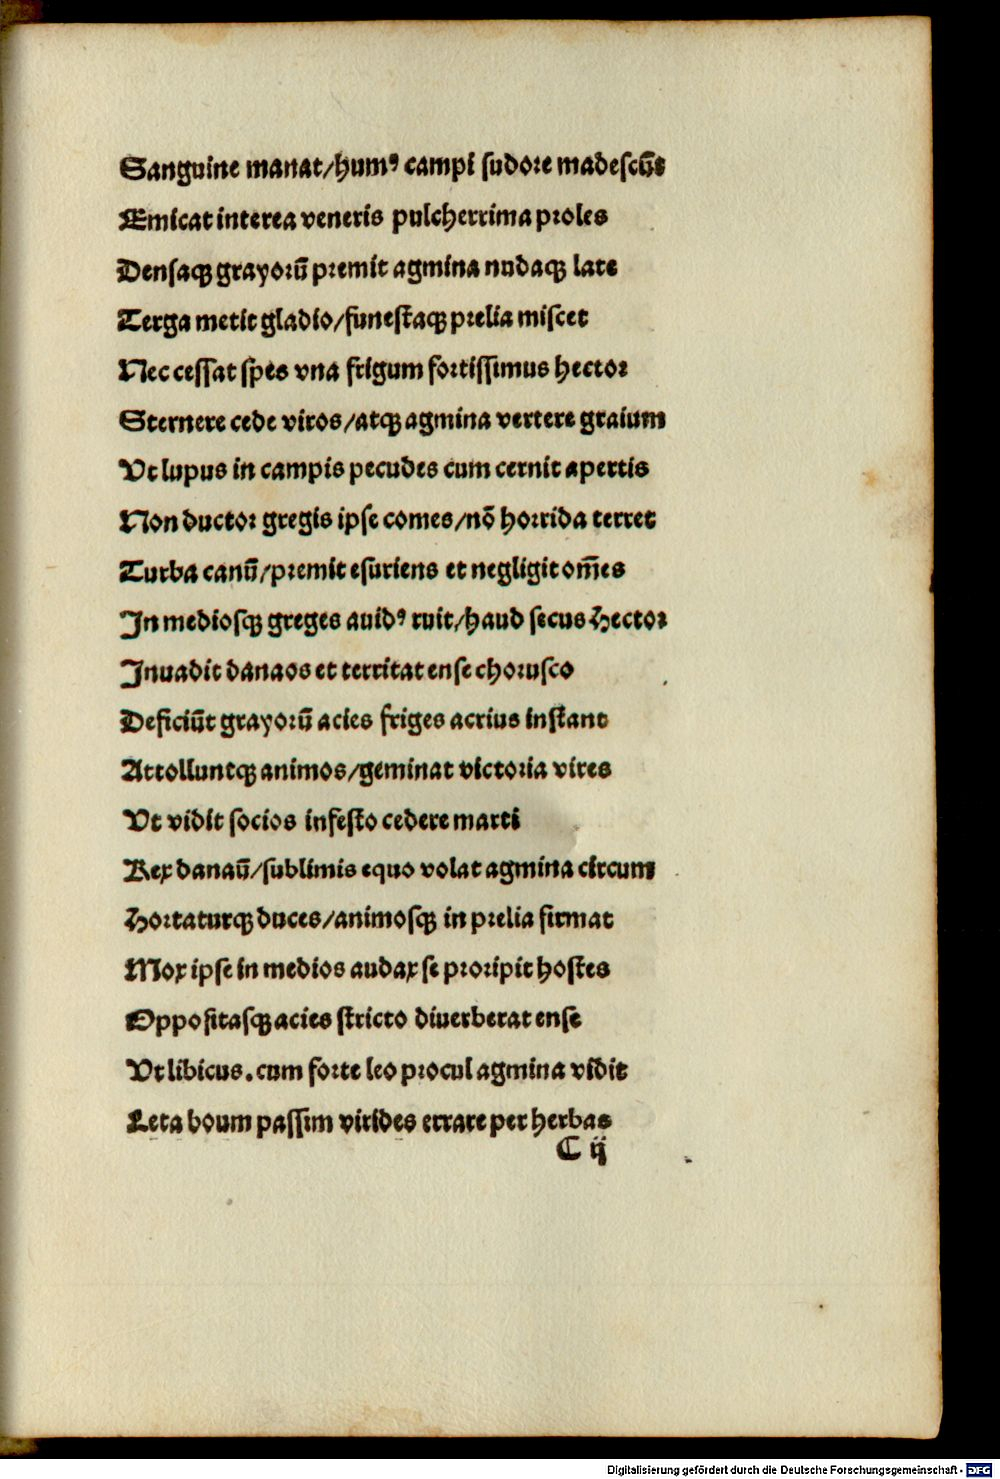 Sanguine manat/humꝰ campi sudore madescũt
Emicat interea veneris pulcherrima proles
Densaqꝫ grayorũ premit agmina nudaqꝫ late
Terga metit gladio/funestaqꝫ prelia miscet
Nec cessat spes vna frigum fortissimus hector
Sternere cede viros/atqꝫ agmina vertere graium
Vt lupus in campis pecudes cum cernit apertis
Non ductor gregis ipse comes/nõ horrida terret
Turba canũ/premit esuriens et negligit om̃es
In mediosqꝫ greges auidꝰ ruit/haud secus Hector
Inuadit danaos et territat ense chorusco
Deficiũt grayorũ acies friges acrius instant
Attolluntqꝫ animos/geminat victoria vires
Vt vidit socios infesto cedere marti
Rex danaũ/sublimis equo volat agmina circum
Hortaturqꝫ duces/animosqꝫ in prelia firmat
Mox ipse in medios audax se proripit hostes
Oppositasqꝫ acies stricto diuerberat ense
Vt libicus.cum forte leo procul agmina vidit
Leta boum passim virides errare per herbas
C ij
Digitalisierung gefördert durch die Deutsche Forschungsgemeinschaft - DFG